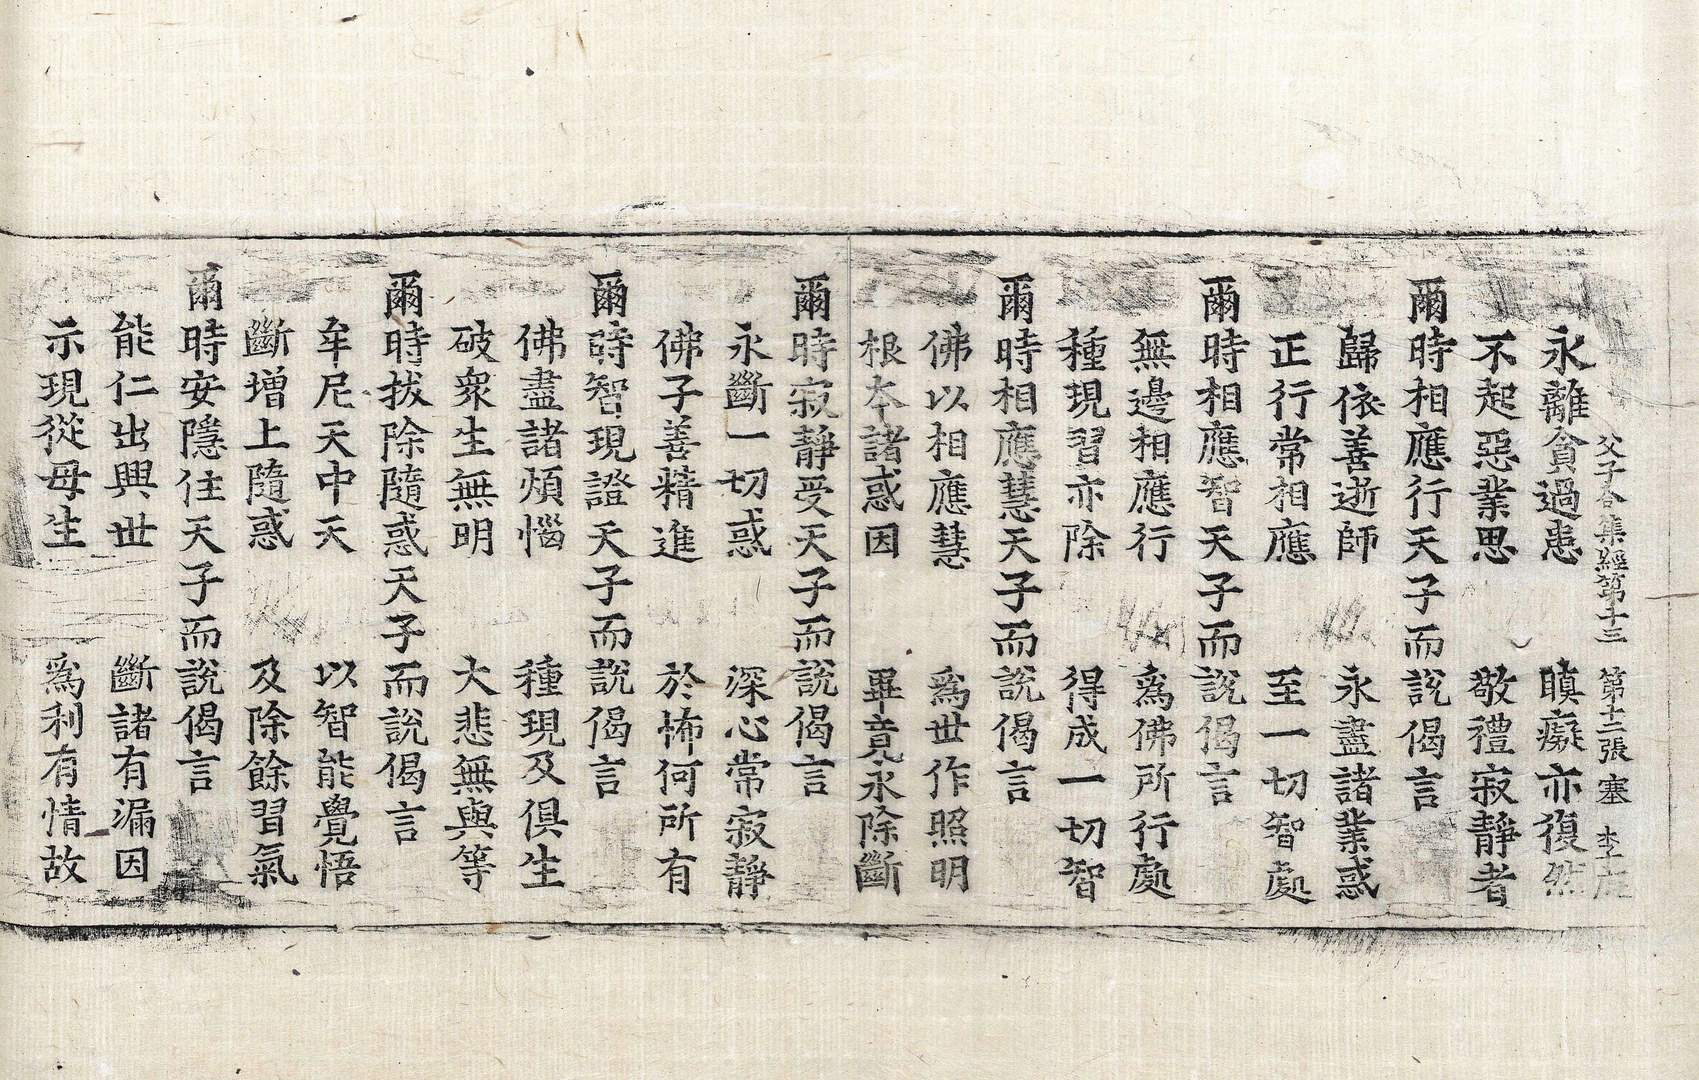 父子合集經第十三 第十二張 塞 李
永離貪過恚 瞋癡亦復然
不起惡業思 敬禮寂靜者
爾時相應行天子而說偈言
歸依善逝師 永盡諸業惑
正行常相應 至一切智處
爾時相應智天子而說偈言
無邊相應行 爲佛所行處
種現習亦除 得成一切智
爾時相應慧天子而說偈言
佛以相應慧 爲世作照明
根本諸惑因 畢竟永除斷
爾時寂靜受天子而說偈言
永斷一切惑 深心常寂靜
佛子善精進 於怖何所有
爾時智現證天子而說偈言
佛盡諸煩惱 種現及俱生
破衆生無明 大悲無與等
爾時拔除隨惑天子而說偈言
牟尼天中天 以智能覺悟
斷增上隨惑 及除餘習氣
爾時安隱住天子而說偈言
能仁出興世 斷諸有漏因
示現從母生 爲利有情故